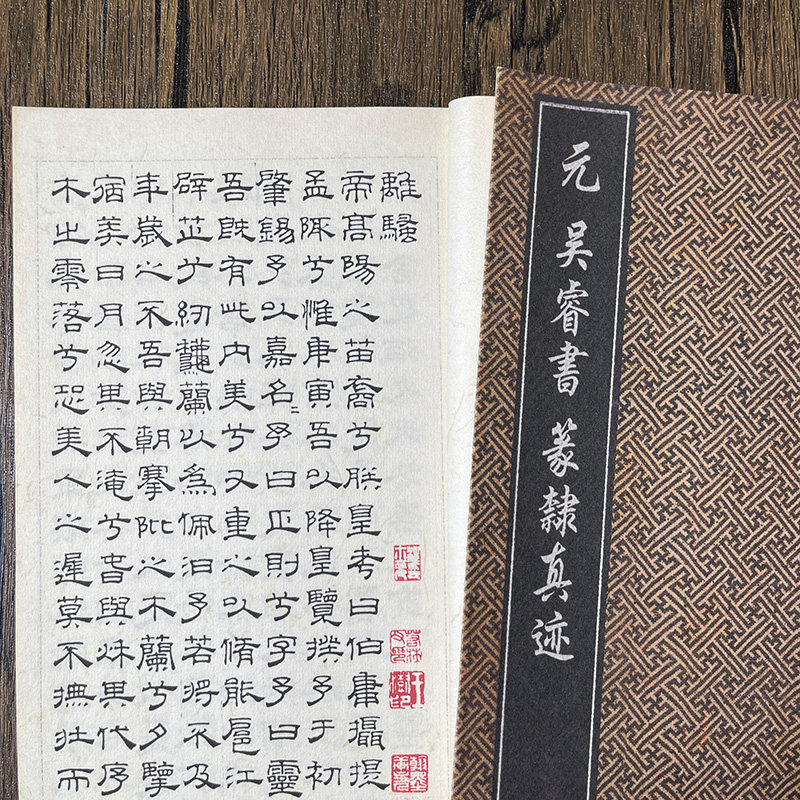 離騷
帝高陽之苗裔兮朕皇考曰伯庸攝提
孟陬兮惟庚寅吾以降皇覽揆予于初
肇錫予以嘉名〻予曰正則兮字予曰靈
吾既有此内美兮又重之以脩能扈江
辟芷兮紉龝蘭以為佩汩予若將不及
年歲之不吾與朝搴阰之木蘭兮夕擥
宿莽日月忽其不淹兮春與秌其代序
木之零落兮恐美人之遲莫不撫壯而
元 吴睿書 篆隸真迹